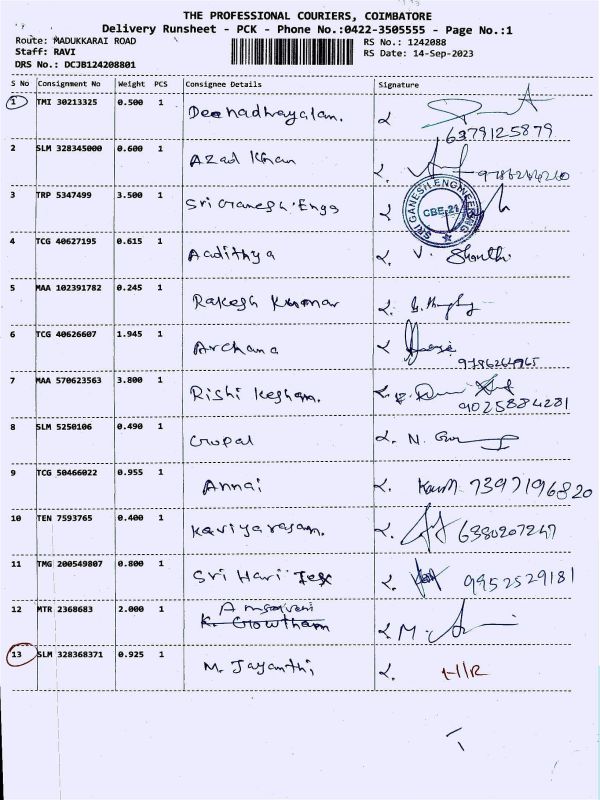 THE PROFESSIONAL COURIERS, COIMBATORE
Delivery Runsheet - PCK - Phone No.:0422-3505555 - Page No.:1
Route: MADUKKARAI ROAD RS No.: 1242088
Staff: RAVI RS Date: 14-Sep-2023
DRS No.: DCJB124208801
S No Consignment No Weight PCS Consignee Details Signature
1 TMI 30213325 0.500 1 Deenadhayalan.
6379125879
2 SLM 328345000 0.600 1 Azad Khan
3 TRP 5347499 3.500 1 Sri Ganesh Engg
SRI GANESH ENGINEERING
CBE-21
4 TCG 40627195 0.615 1 Aadithya V.
5 MAA 102391782 0.245 1 Rakesh Kumar
6 TCG 40626607 1.945 1 Archana
7 MAA 570623563 3.800 1 Rishi Kesham.
9025884281
8 SLM 5250106 0.490 1 Gopal N.
9 TCG 50466022 0.955 1 Annai 7397196820
10 TEN 7593765 0.400 1 Kaviyarasan. 6380207247
11 TMG 200549807 0.800 1 Sri Hari Tex 9952529181
12 MTR 2368683 2.000 1 K. Gowtham M.
13 SLM 328368371 0.925 1 M. Jayanthi